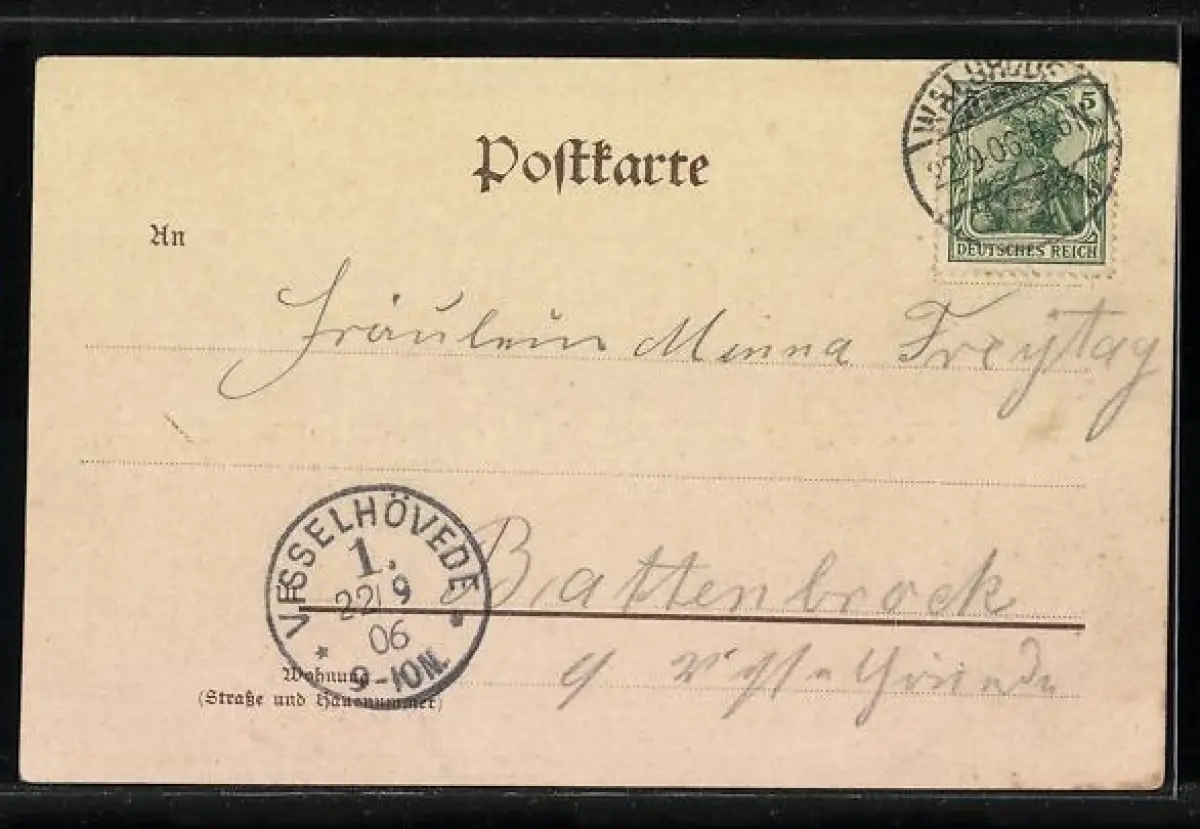 WALSRODE
22/9 06
5
DEUTSCHES REICH
Postkarte
An
Fräulein Minna Freytag
VISSELHÖVEDE
1.
22/9
06
9-10N.
Battenbrock
Wohnung
(Straße und Hausnummer)